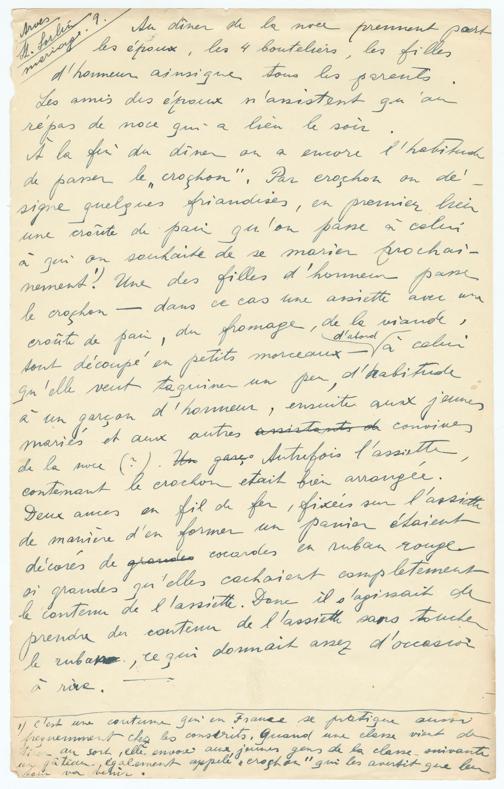 Arves
St. Sorlin
mariage. 9.
Au dîner de la noce prennent part
les époux, les 4 bouteliers, les filles
d'honneur ainsi que tous les parents.
Les amis des époux n'assistent qu'au
répas de noce qui a lieu le soir.
À la fin du dîner on a encore l'habitude
de passer le „croçhon". Par croçhon on dé-
signe quelques friandises, en premier lieu
une croûte de pain qu'on passe à celui
à qui on souhaite de se marier prochai-
nement.¹) Une des filles d'honneur passe
le croçhon — dans ce cas une assiette avec une
croûte de pain, du fromage, de la viande,
tout découpé en petits morceaux — d'abord à celui
qu'elle veut taquiner un peu, d'habitude
à un garçon d'honneur, ensuite aux jeunes
mariés et aux autres assistants d convives
de la noce (?). Un garço Autrefois l'assiette,
contenant le crochon était bien arrangée.
Deux anses en fil de fer, fixées sur l'assiette
de manière d'en former un panier étaient
décorés de grandes cocardes en ruban rouge
si grandes qu'elles cachaient complètement
le contenu de l'assiette. Donc il s'agissait de
prendre du contenu de l'assiette sans toucher
le ruban, ce qui donnait assez d'occasion
à rire.
¹) C'est une coutume qui en France se pratique aussi
fréquemment chez les conscrits. Quand une classe vient de
tirer au sort, elle envoie aux jeunes gens de la classe suivante
un gâteau, également appelé „croçhon" qui les avertit que leur
tour va venir.